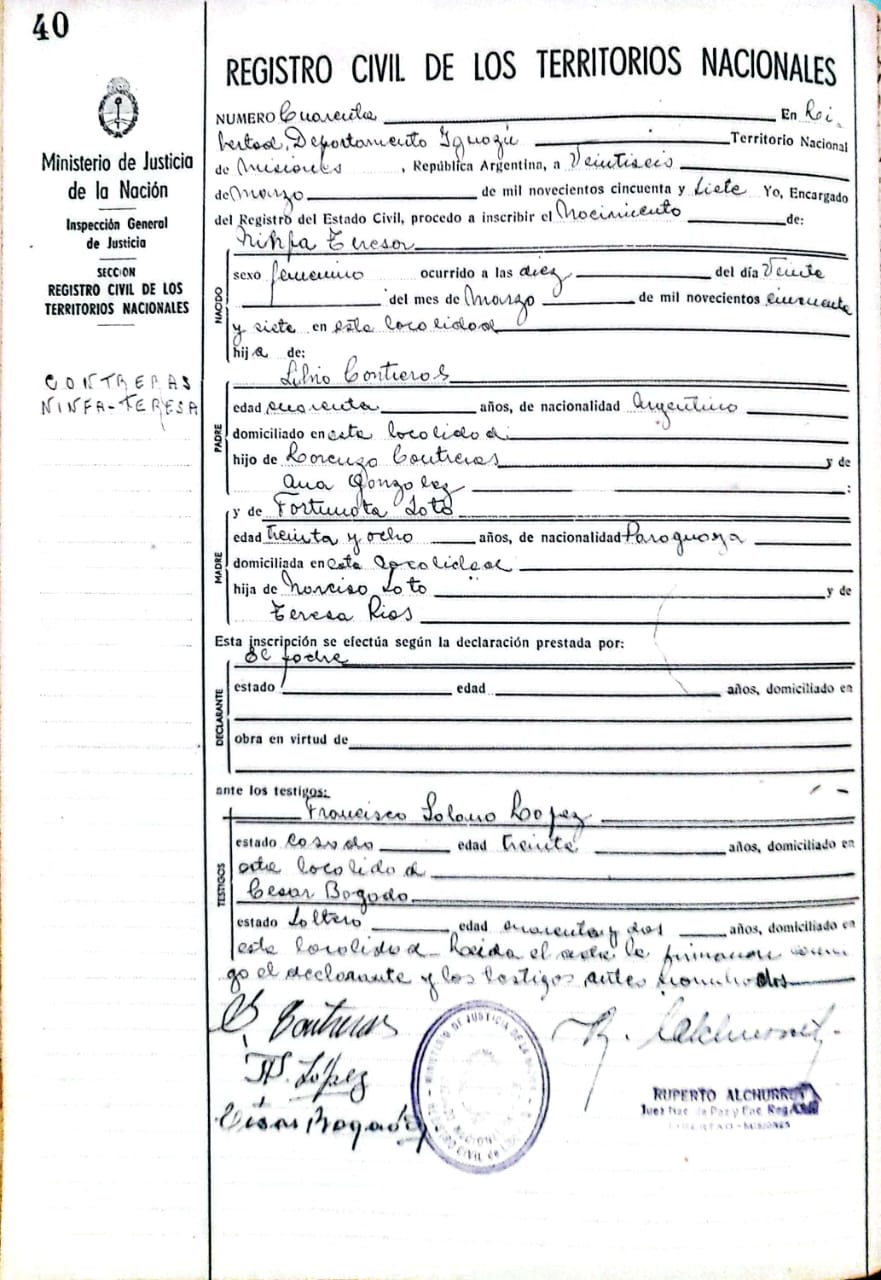 40
Ministerio de Justicia
de la Nación
Inspección General
de Justicia
SECCION
REGISTRO CIVIL DE LOS
TERRITORIOS NACIONALES
CONTRERAS
NINFA-TERESA
REGISTRO CIVIL DE LOS TERRITORIOS NACIONALES
NUMERO Cuarenta En Li-
bertad, Departamento Iguazú Territorio Nacional
de Misiones, República Argentina, a Veintiseis
de Marzo de mil novecientos cincuenta y Siete Yo, Encargado
del Registro del Estado Civil, procedo a inscribir el Nacimiento de:
Ninfa Teresa
NACIDO
sexo femenino ocurrido a las diez del día Veinte
del mes de Marzo de mil novecientos cincuenta
y siete en esta localidad
hija de:
Silvio Contreras
PADRE
edad cuarenta años, de nacionalidad Argentino
domiciliado en esta localidad
hijo de Lorenzo Contreras y de
Ana Gonzalez :
y de Fortunata Soto
MADRE
edad treinta y ocho años, de nacionalidad Paraguaya
domiciliada en esta localidad
hija de Narciso Soto y de
Teresa Rios
Esta inscripción se efectúa según la declaración prestada por:
El padre
DECLARANTE
estado edad años, domiciliado en
obra en virtud de
ante los testigos:
Francisco Solano Lopez
TESTIGOS
estado casado edad treinta años, domiciliado en
esta localidad
Cesar Bogado
estado Soltero edad cuarenta y dos años, domiciliado en
esta localidad - Leida el acta la firmaron conmi
go el declarante y los testigos antes nombrados
S. Contreras
F. S. López
César Bogado
MINISTERIO DE JUSTICIA DE LA
RUPERTO ALCHURRUT
Juez Nac. de Paz y Enc. Reg.
LIBERTAD - MISIONES